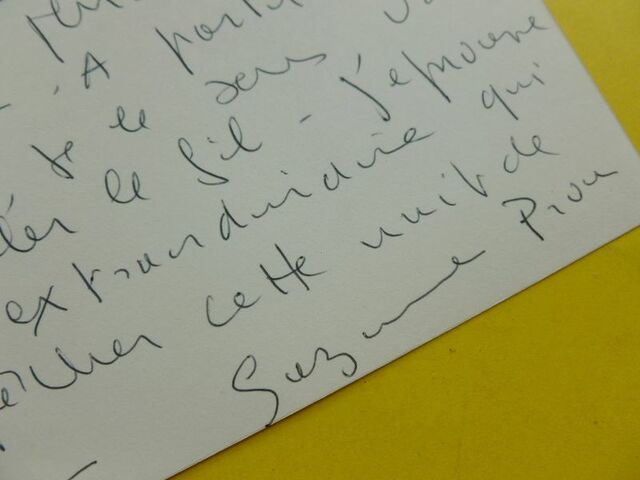 . A
te le sens
le fil - j'éprouve
extraordinaire qui
cette nuit de
Suzanne Prou